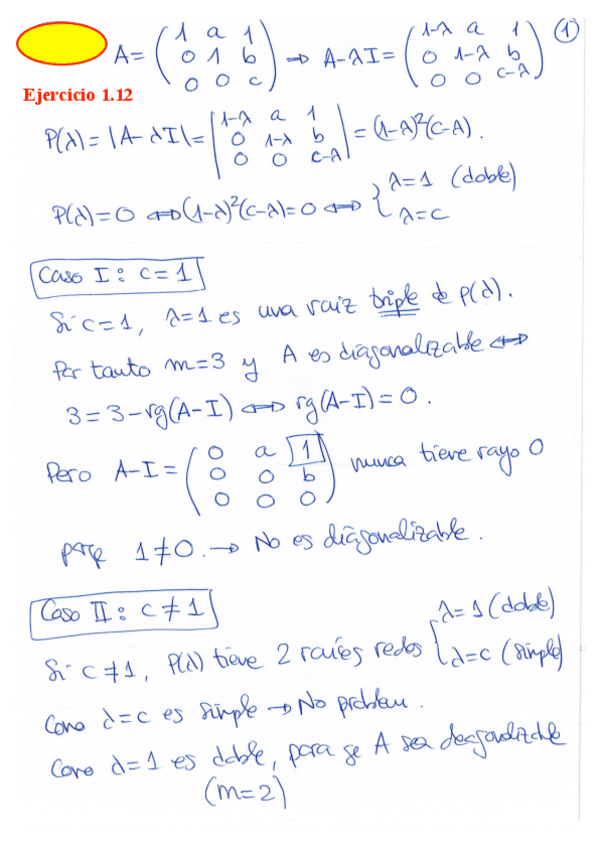 A = ( 1 a 1 ; 0 1 b ; 0 0 c ) → A-λI = ( 1-λ a 1 ; 0 1-λ b ; 0 0 c-λ ) ①
Ejercicio 1.12
P(λ) = |A-λI| = | 1-λ a 1 ; 0 1-λ b ; 0 0 c-λ | = (1-λ)²(c-λ).
P(λ)=0 ⟺ (1-λ)²(c-λ)=0 ⟺ { λ=1 (doble) ; λ=c
Caso I : c=1
Si c=1, λ=1 es una raiz triple de p(λ).
Por tanto m=3 y A es diagonalizable ⟺
3=3-rg(A-I) ⟺ rg(A-I)=0.
Pero A-I = ( 0 a 1 ; 0 0 b ; 0 0 0 ) nunca tiene rango 0
porq 1≠0. → No es diagonalizable.
Caso II : c≠1
Si c≠1, P(λ) tiene 2 raíces reales { λ=1 (doble) ; λ=c (simple)
Como λ=c es simple → No problem.
Como λ=1 es doble, para q A sea diagonalizable
(m=2)